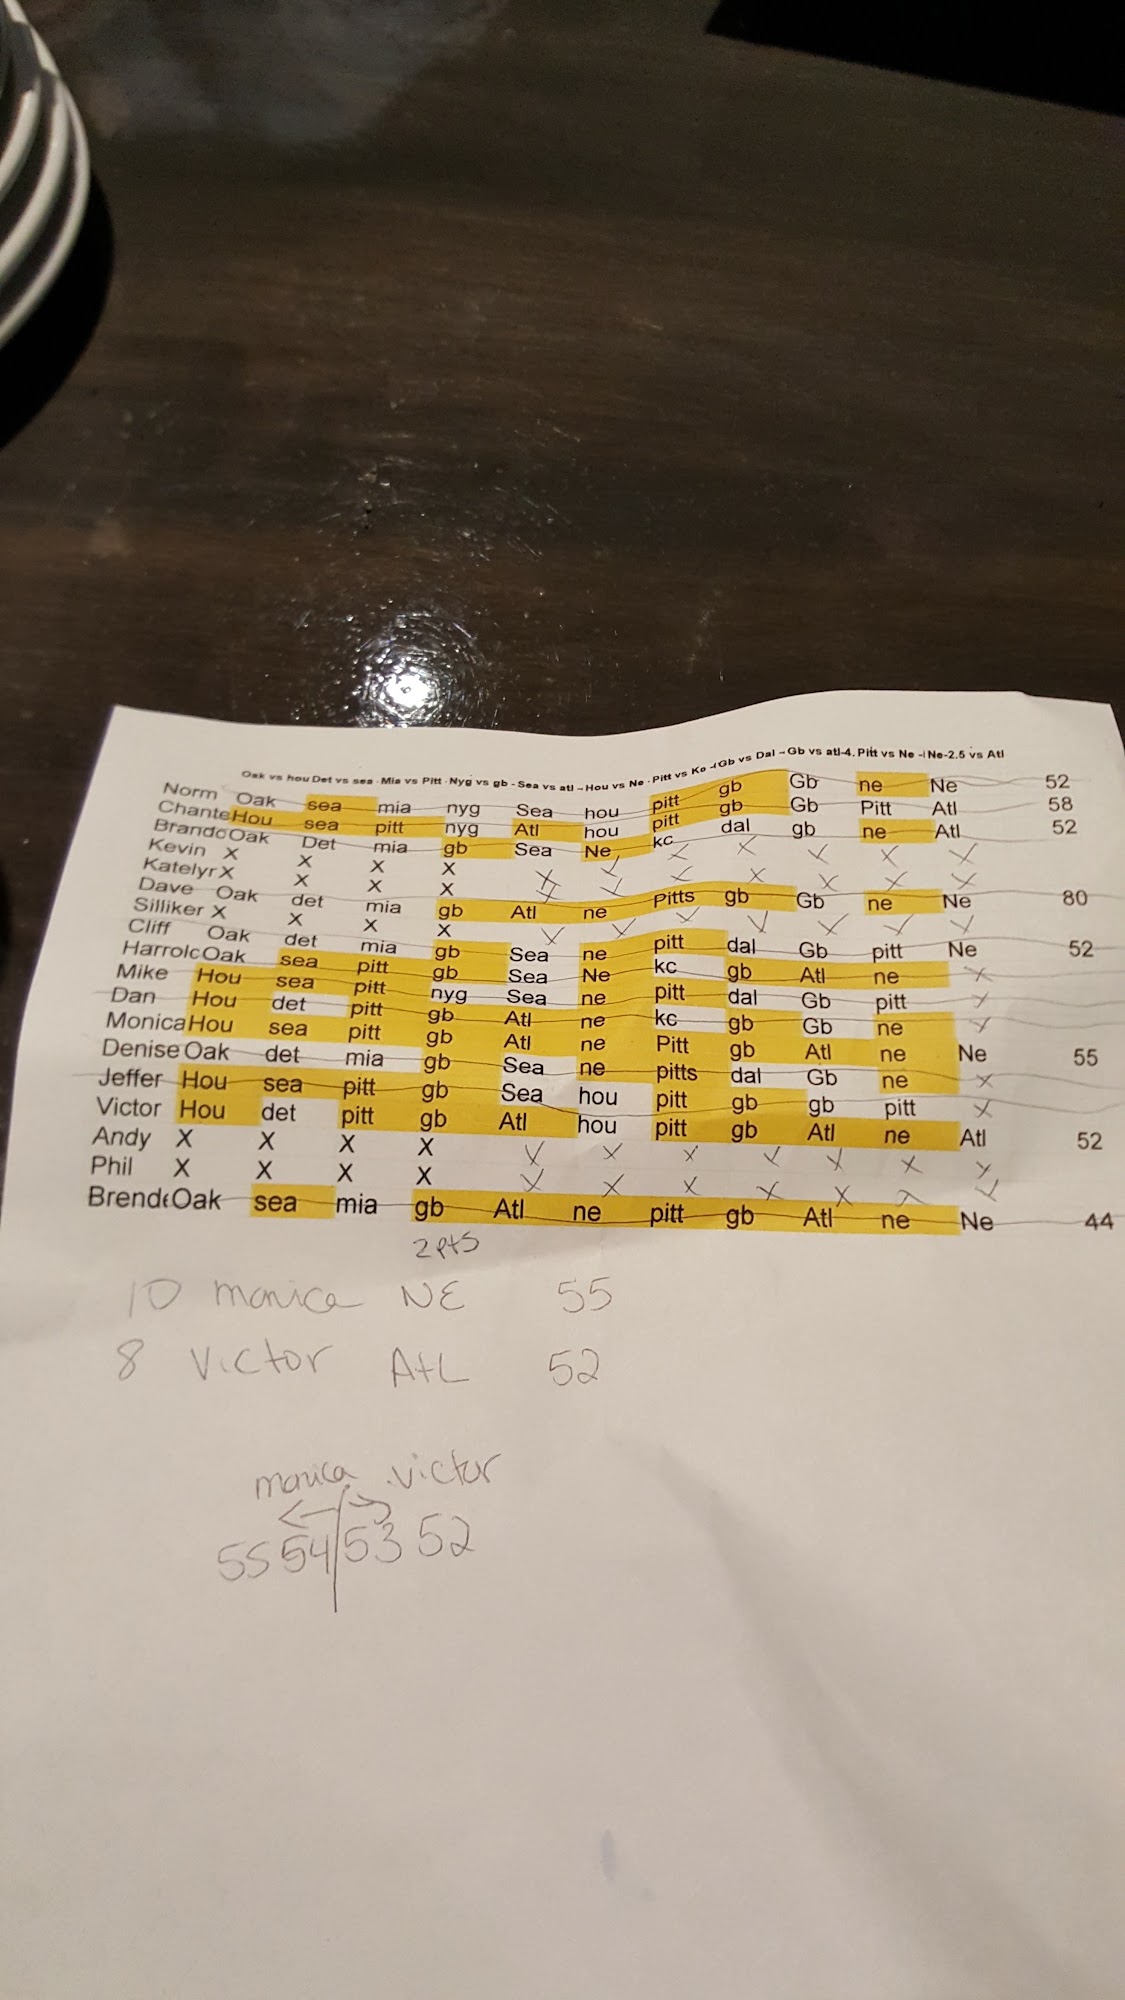 Oak vs hou Det vs sea - Mia vs Pitt - Nyg vs gb - Sea vs atl - Hou vs Ne - Pitt vs Kc - Gb vs Dal - Gb vs atl-4. Pitt vs Ne - Ne-2.5 vs Atl
Norm Oak sea mia nyg Sea hou pitt gb Gb ne Ne 52
Chante Hou sea pitt nyg Atl hou pitt gb Gb Pitt Atl 58
Brandc Oak Det mia gb Sea Ne kc dal gb ne Atl 52
Kevin X X X X X X X X X X X
Katelyr X X X X X X X X X X X
Dave Oak det mia gb Atl ne Pitts gb Gb ne Ne 80
Silliker X X X X X X X X X X X
Cliff Oak det mia gb Sea ne pitt dal Gb pitt Ne 52
Harrolc Oak sea pitt gb Sea Ne kc gb Atl ne X
Mike Hou sea pitt nyg Sea ne pitt dal Gb pitt X
Dan Hou det pitt gb Atl ne kc gb Gb ne X
Monica Hou sea pitt gb Atl ne Pitt gb Atl ne Ne 55
Denise Oak det mia gb Sea ne pitts dal Gb ne X
Jeffer Hou sea pitt gb Sea hou pitt gb gb pitt X
Victor Hou det pitt gb Atl hou pitt gb Atl ne Atl 52
Andy X X X X X X X X X X X
Phil X X X X X X X X X X X
Brend Oak sea mia gb Atl ne pitt gb Atl ne Ne 44
2 pts
10 monica NE 55
8 Victor AtL 52
monica victor
55 54 53 52